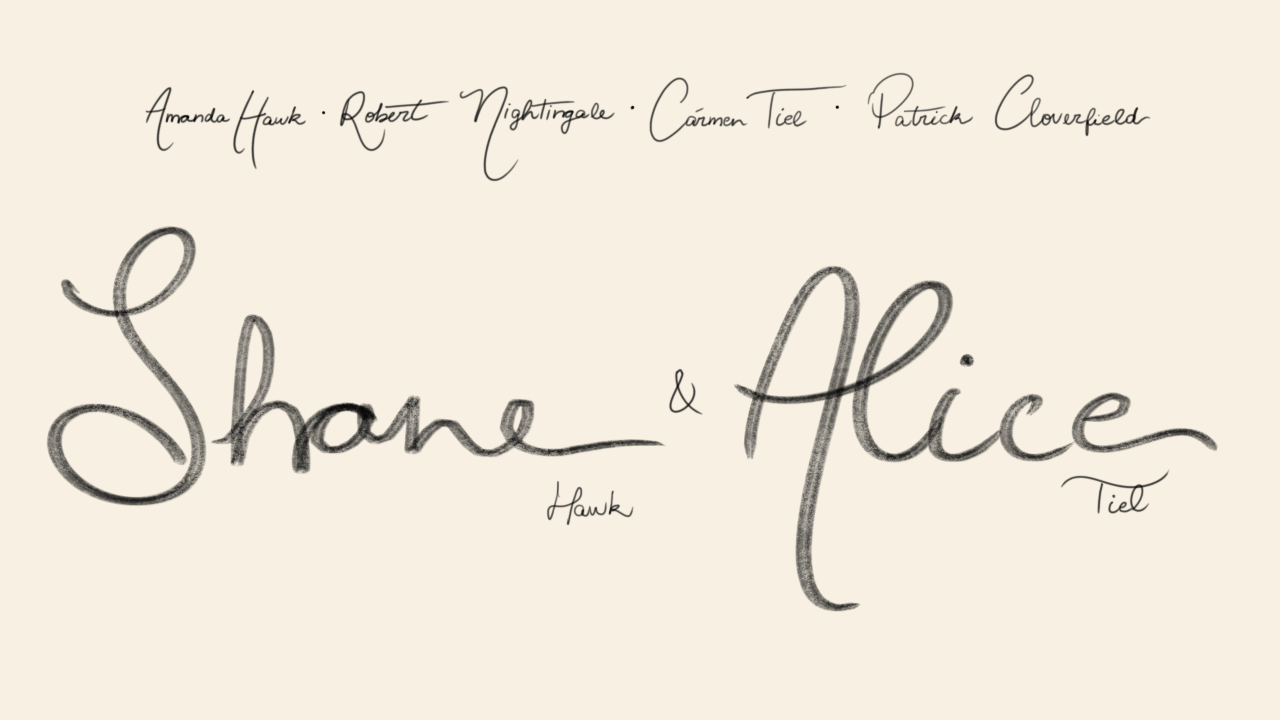 Amanda Hawk · Robert Nightingale · Cármen Tiel · Patrick Cloverfield
Shane & Alice
Hawk Tiel